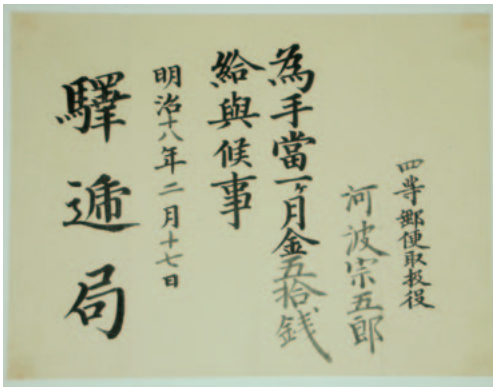 四等郵便取扱役
河波宗五郎
為手當一ヶ月金五拾銭
給與候事
明治十八年二月十七日
驛遞局